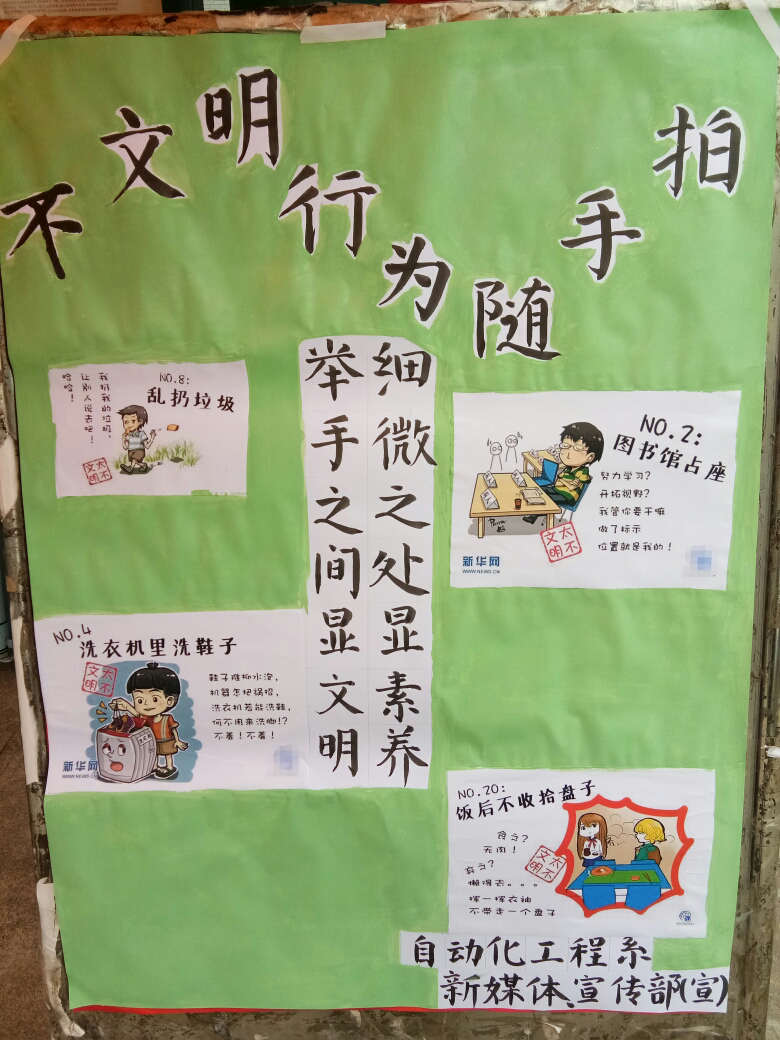 不文明行为随手拍
细微之处显素养
举手之间显文明
NO.8:
乱扔垃圾
我扔我的垃圾,
让别人说去吧!
哈哈!
太不文明
NO.2:
图书馆占座
努力学习?
开拓视野?
我管你要干嘛
做了标示
位置就是我的!
太不文明
新华网
WWW.NEWS.CN
NO.4
洗衣机里洗鞋子
太不文明
鞋子难抑水泡,
机器怎把锅招,
洗衣机若能洗鞋,
何不用来洗脚!?
不羞!不羞!
新华网
WWW.NEWS.CN
NO.20:
饭后不收拾盘子
食之?
无肉!
弃之?
懒得去。。。
挥一挥衣袖
不带走一个盘子
太不文明
自动化工程系
新媒体、宣传部(宣)